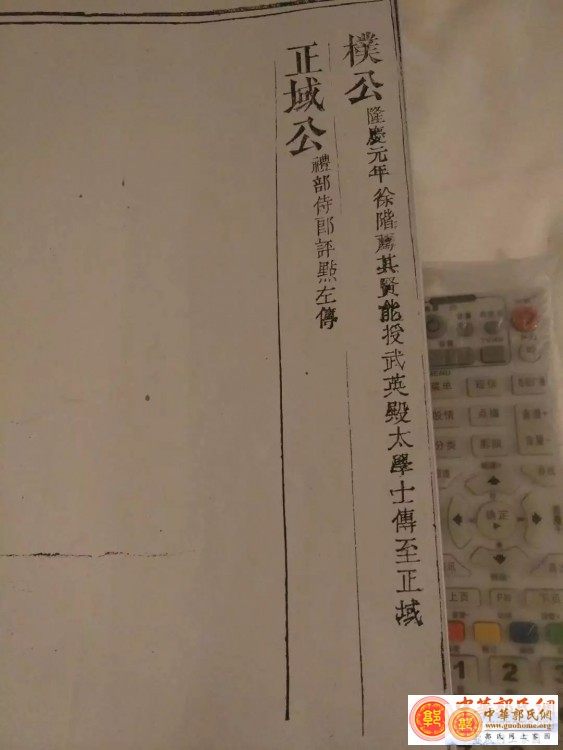 樸公 隆慶元年徐階薦其賢能授武英殿太學士傳至正域
正域公 禮部侍郎評點左傳
MENU
菜单
点播
分类
确定
上页
F各
1
2
中華郭氏網
www.guohome.org
郭氏网上家园